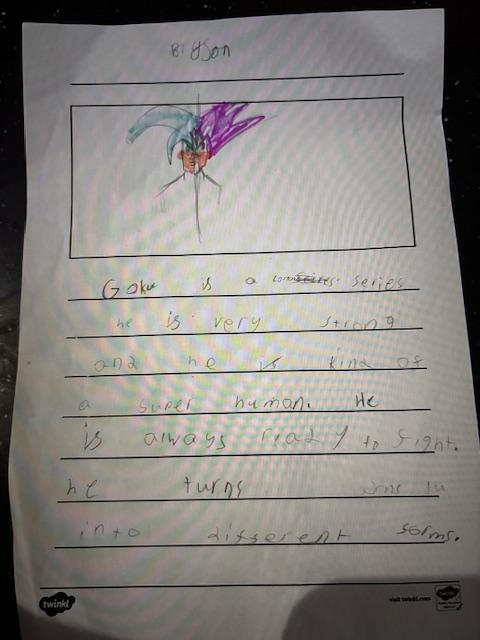 Bryson
Goku is a series
he is very strong
and he is kind of
a super human. He
is always ready to fight.
he turns
into different forms.
twinkl
visit twinkl.com
twinkl